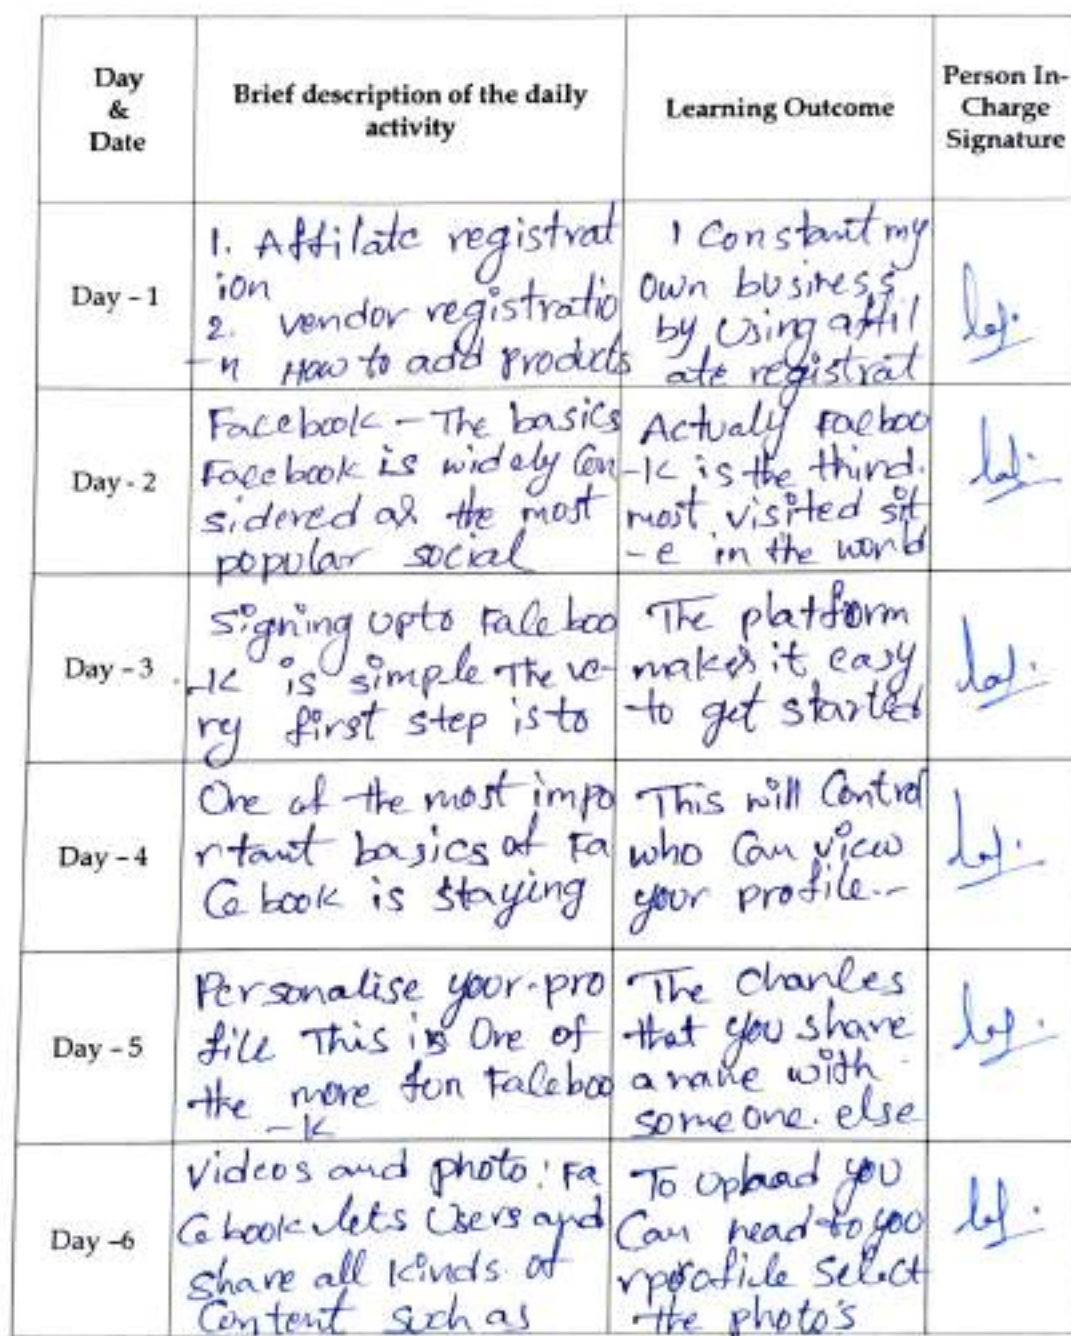 Day
&
Date
Brief description of the daily
activity
Learning Outcome
Person In-
Charge
Signature
Day - 1
1. Affilate registrat
ion
2. vendor registratio
-n How to add products
I Constant my
own business
by Using affil
ate registrat
Day - 2
Facebook - The basics
Facebook is widely Con
sidered as the most
popular social
Actualy Facboo
-k is the third.
most visited sit
-e in the world
Day - 3
Signing upto Faceboo
-k is simple The ve-
ry first step is to
The platform
makes it easy
to get started
Day - 4
One of the most impo
rtant basics of Fa
Ce book is staying
This will Control
who Can view
your profile--
Day - 5
Personalise your-pro
file This is One of
the more fun Faceboo
-k
The chances
that you share
a name with
someone. else
Day -6
Videos and photo: Fa
Cebook lets Users and
share all kinds of
Content such as
To upload you
Can head to you
rprofile Select
the photo's